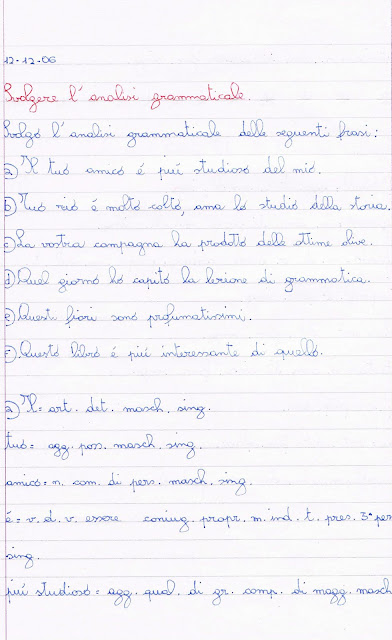 12-12-06
Svolgere l'analisi grammaticale.
Svolgo l'analisi grammaticale delle seguenti frasi:
a) Il tuo amico é piú studioso del mio.
b) Tuo zio é molto colto, ama lo studio della storia.
c) La vostra campagna ha prodotto delle ottime olive.
d) Quel giorno ho capito la lezione di grammatica.
e) Questi fiori sono profumatissimi.
f) Questo libro é piú interessante di quello.
a) Il= art. det. masch. sing.
tuo= agg. poss. masch. sing.
amico= n. com. di pers. masch. sing.
é= v. d. v. essere coniug. propr. m. ind. t. pres. 3ª pers
sing.
piú studioso= agg. qual. di gr. comp. di magg. masch